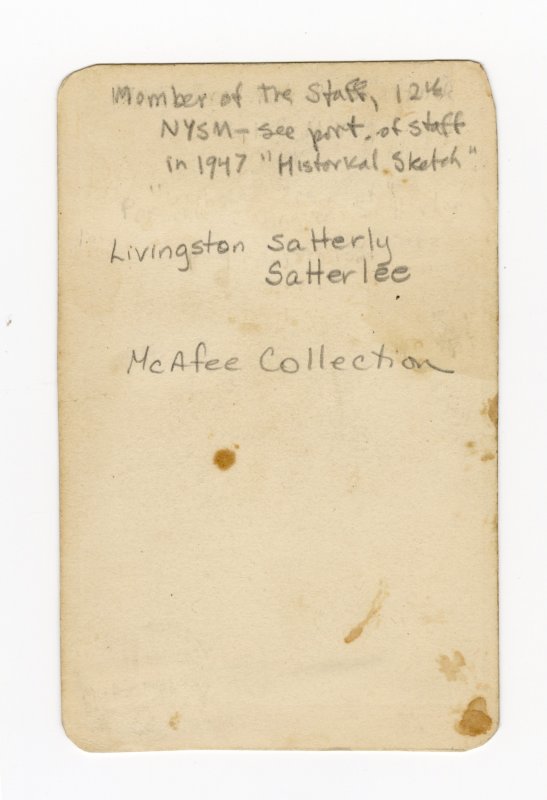 Member of the Staff, 12th
NYSM - see port. of staff
in 1947 "Historical Sketch"
Livingston Satterly
Satterlee
McAfee Collection